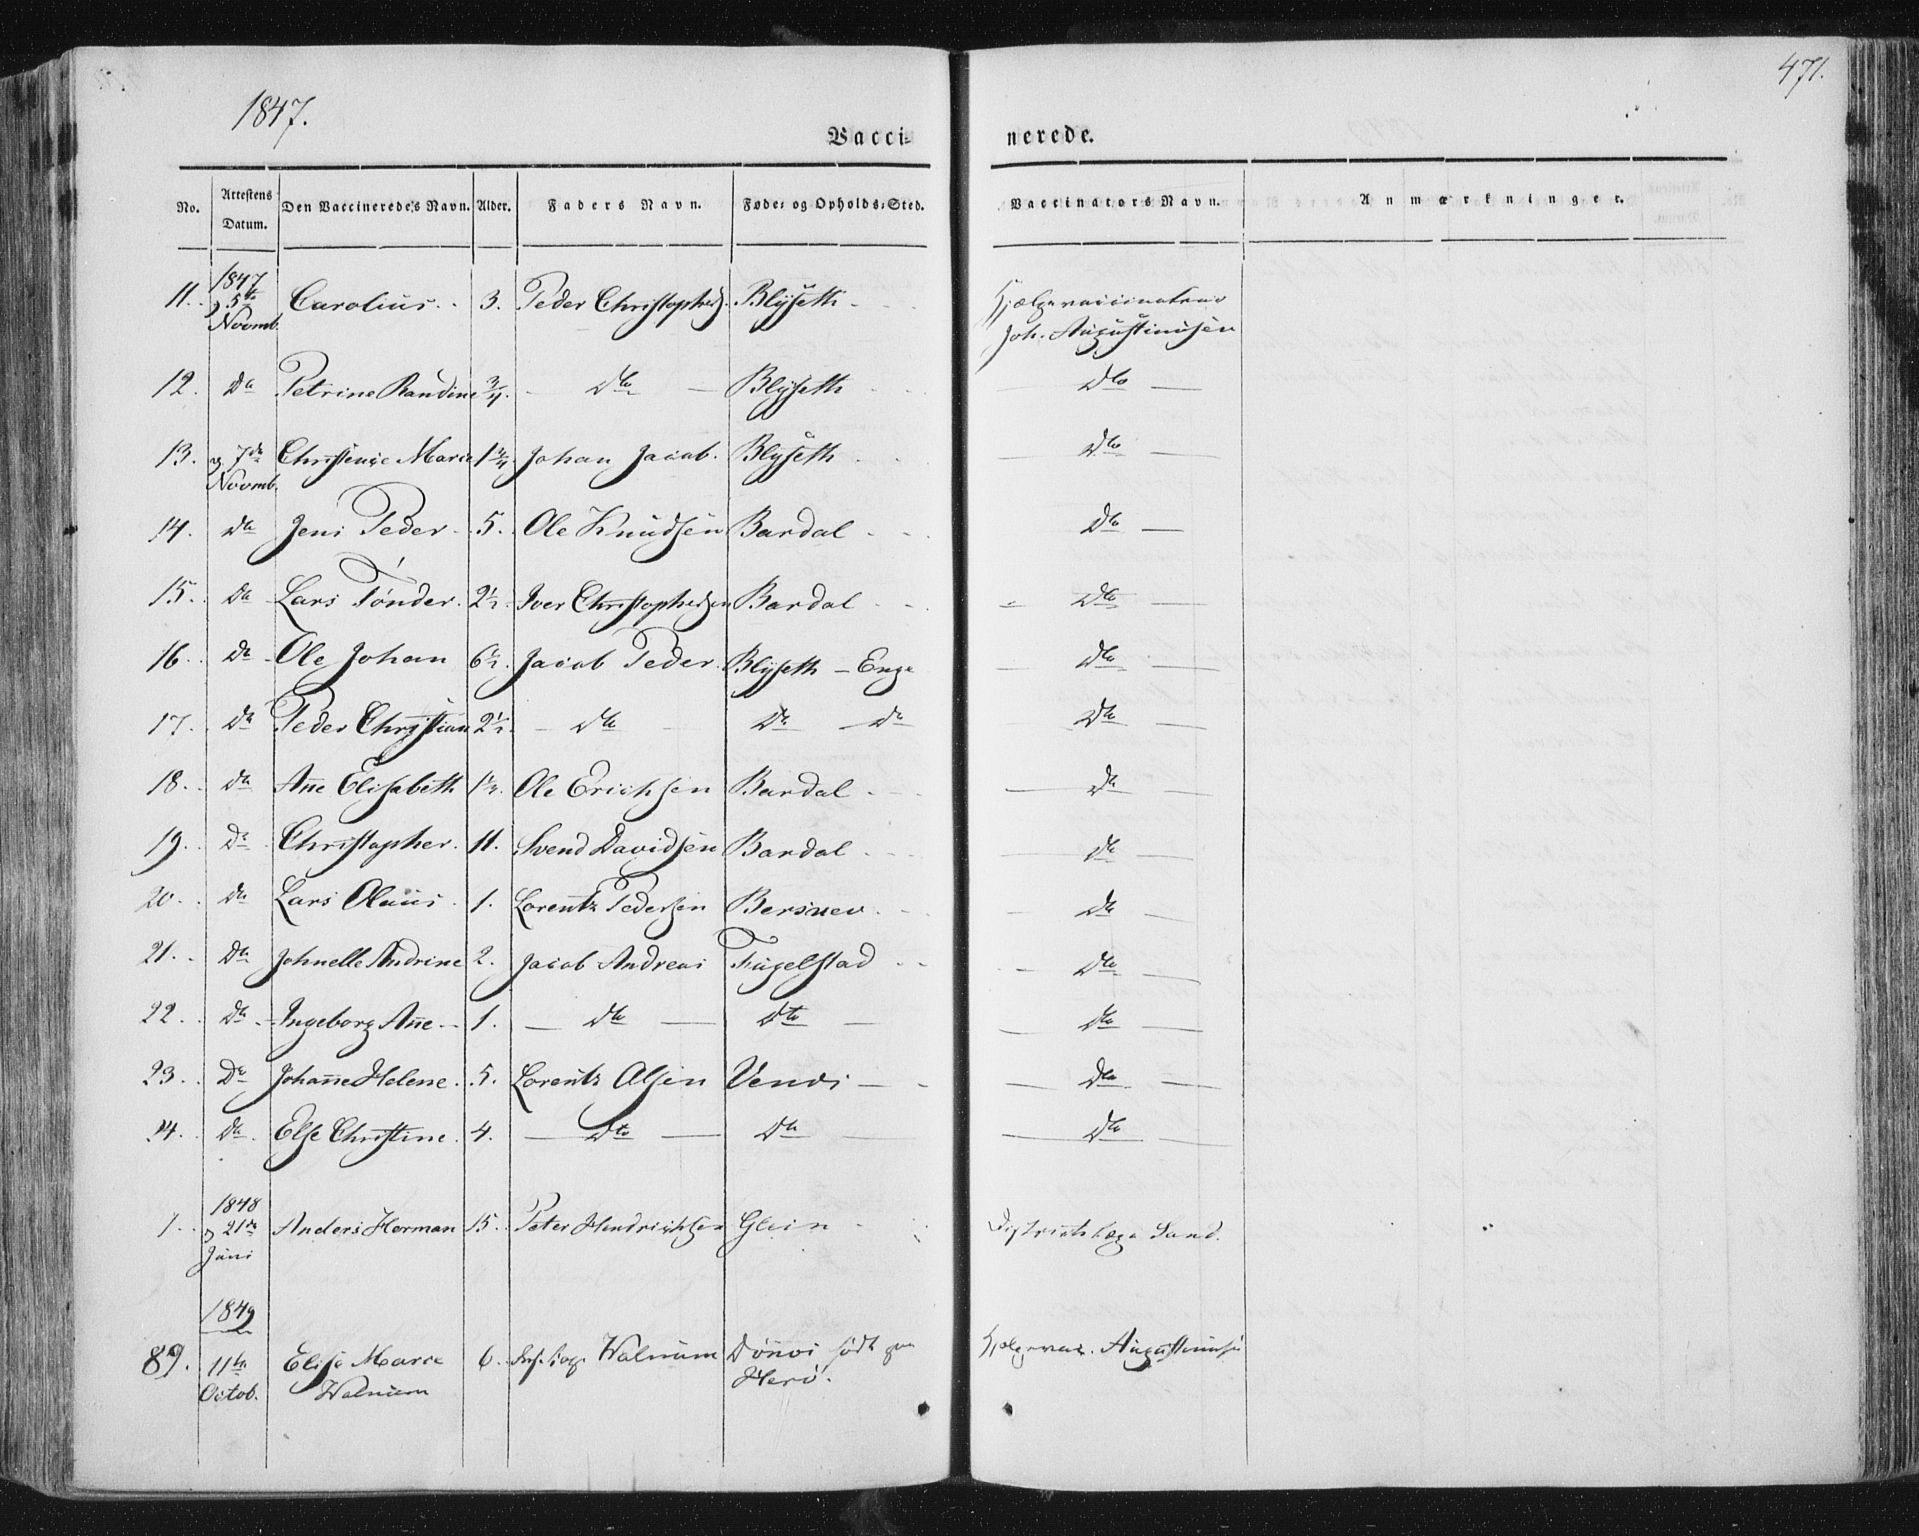 1847.
471.
Vacci-
nerede.
No. Attestens Datum. Den Vaccineredes Navn. Alder. Faders Navn. Føde- og Opholds-Sted. Vaccinators Navn. Anmærkninger.
11. 1847 5te Novmb. Carolius. 3. Peder Christophers. Blyseth Hjælpevaccinateur Joh. Augustinusen
12. Do Petrine Randine 3/4. Dto Blyseth Dto
13. 7de Novmb. Christence Marie 1 3/4. Johan Jacob. Blyseth Dto
14. Do Jens Peder 5. Ole Knudsen Bardal Dto
15. Do Lars Tønder. 2 1/2. Iver Christophersen Bardal Dto
16. Do Ole Johan 6 1/2. Jacob Peder. Blyseth – Enge Dto
17. Do Peder Christian 2 1/2. Dto Do Do Dto
18. Do Ane Elisabeth 1 1/2. Ole Erichsen Bardal Do
19. Do Christopher. 11. Svend Davidsen Bardal Do
20. Do Lars Olaus 1. Lorentz Pedersen Do
21. Do Johnelle Andrine 2. Jacob Andreas Fugelstad Dto
22. Do Ingeborg Ane 1. Dto Dto Do
23. Do Johanne Helene. 5. Lorentz Olsen Do
24. Do Else Christine. 4. Dto Do Dto
1. 1848 21de Juni Anders Herman 15. Peter Hendrichsen Glein Districtslæge Sand.
1849
89. 11te Octob. Elise Marie Walnum 6. Walnum Dønøs født paa Herø. Hjelpevac. Augustinusen